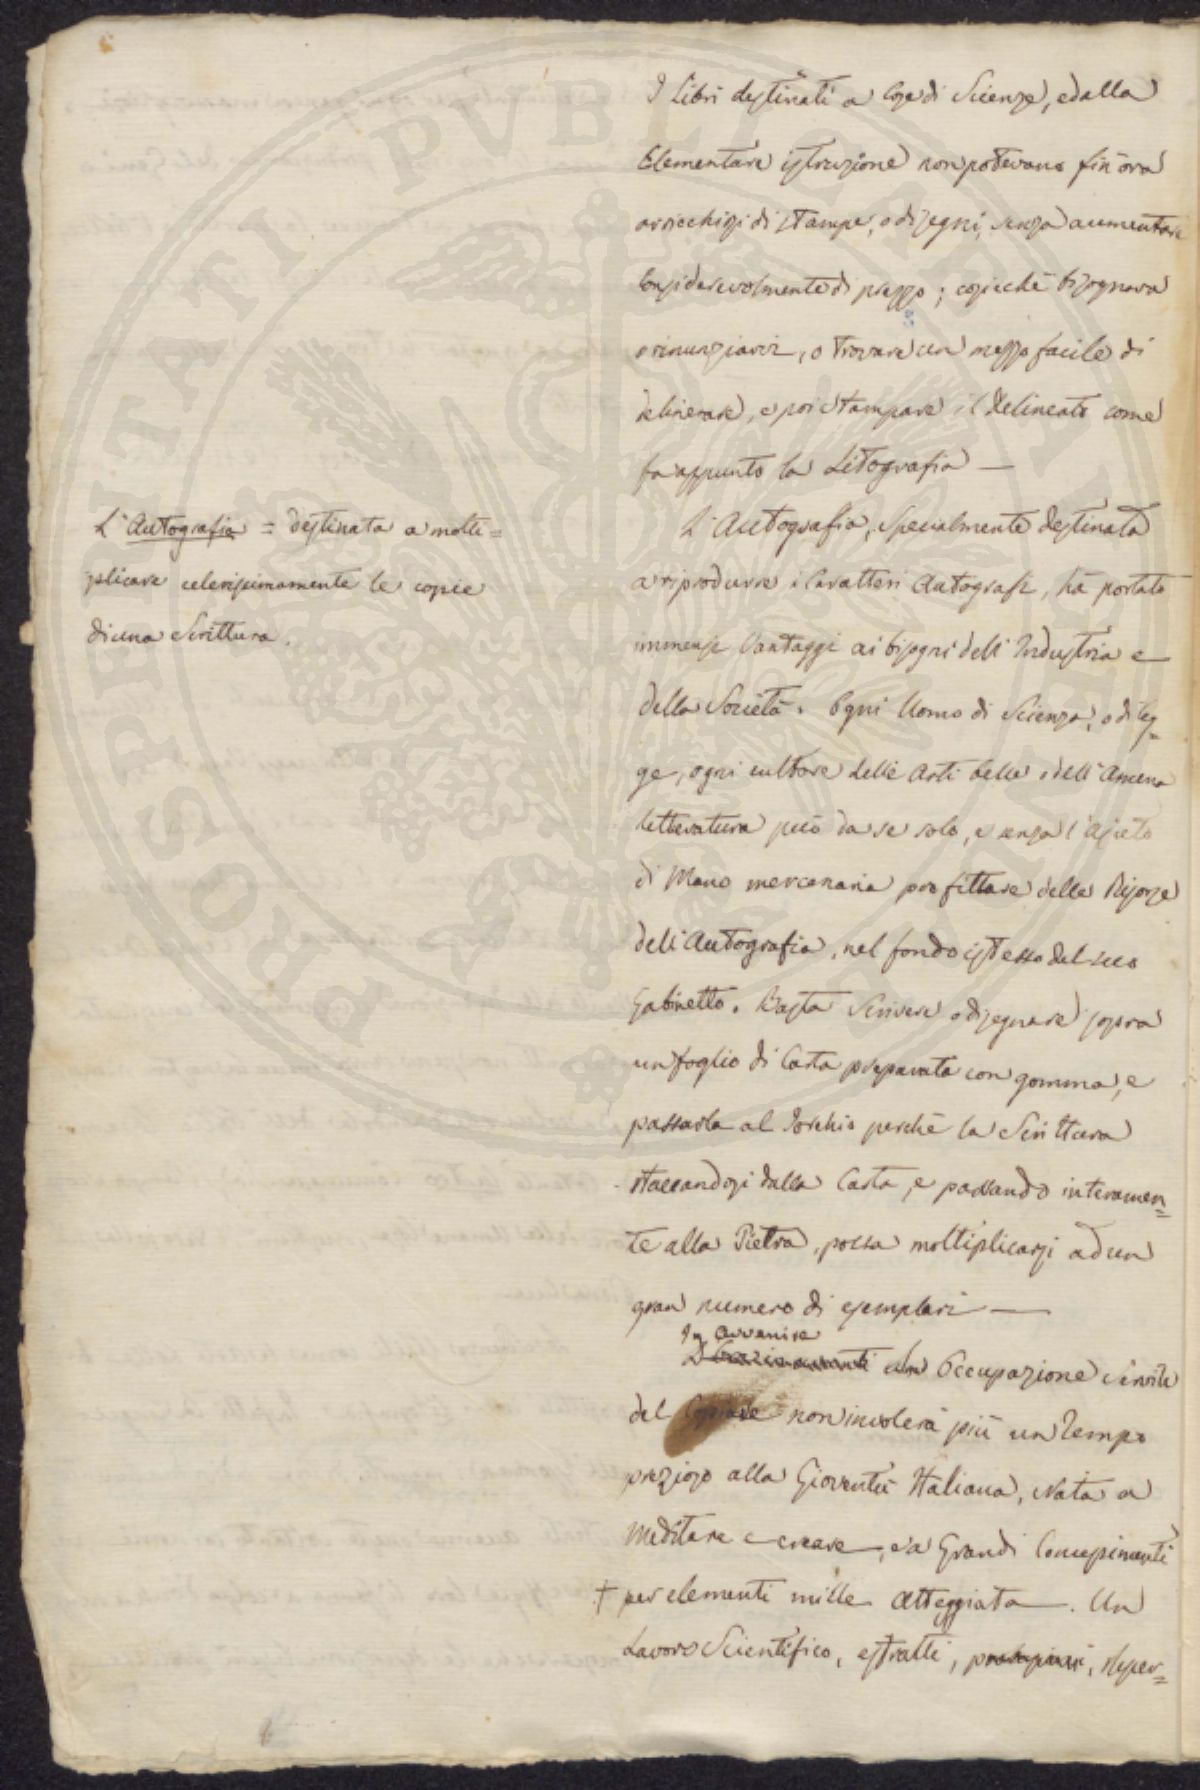 I Libri destinati a Cose di Scienze, ed alla
Elementare istruzione non potevano fin'ora
arricchirsi di stampe, o disegni, senza aumentare
Considerevolmente di prezzo; cosicchè bisognava
o rinunziarvi, o trovare un mezzo facile di
delineare, e poi stampare il delineato come
fa appunto la Litografia —
L'Autografia = destinata a molti=
plicare celerissimamente le copie
di una Scrittura.
L'Autografia, specialmente destinata
a riprodurre i Caratteri Autografi, ha portato
immensi Vantaggi ai bisogni dell'Industria e
della Società. Ogni Uomo di Scienza, o di leg=
ge, ogni cultore delle Arti belle o dell'Amena
letteratura può da se solo, e senza l'ajuto
di Mano mercenaria profittare delle Risorse
dell'Autografia, nel fondo istesso del suo
Gabinetto. Basta Scrivere o disegnare sopra
un foglio di Carta preparata con gomma, e
passarla al Torchio perchè la Scrittura
staccandosi dalla Carta, e passando interamen=
te alla Pietra, possa moltiplicarsi ad un
gran numero di esemplari —
In avvenire
Occupazione Servile
del Copiare non involerà più un Tempo
prezioso alla Gioventù Italiana, Nata a
Meditare e creare, e a Grandi Concepimenti
† per elementi mille atteggiata —. Un
Lavoro Scientifico, estratti, Reper=
PROSPERITATI PUBLICAE